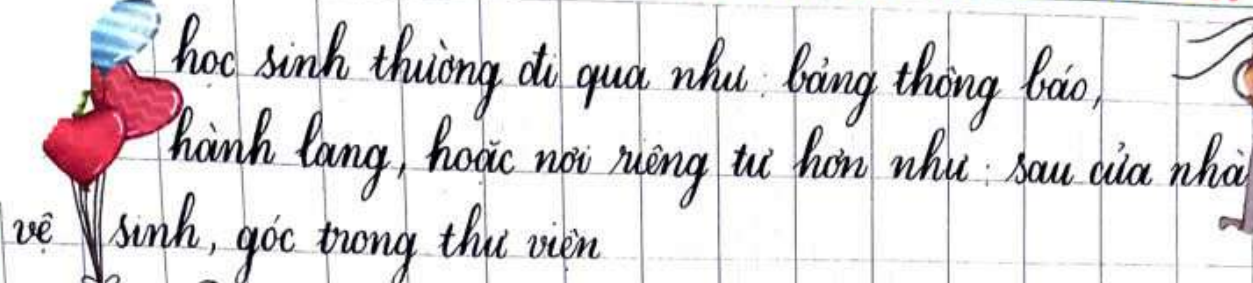 học sinh thường đi qua như: bảng thông báo,
hành lang, hoặc nơi riêng tư hơn như: sau cửa nhà
vệ sinh, góc trong thư viện